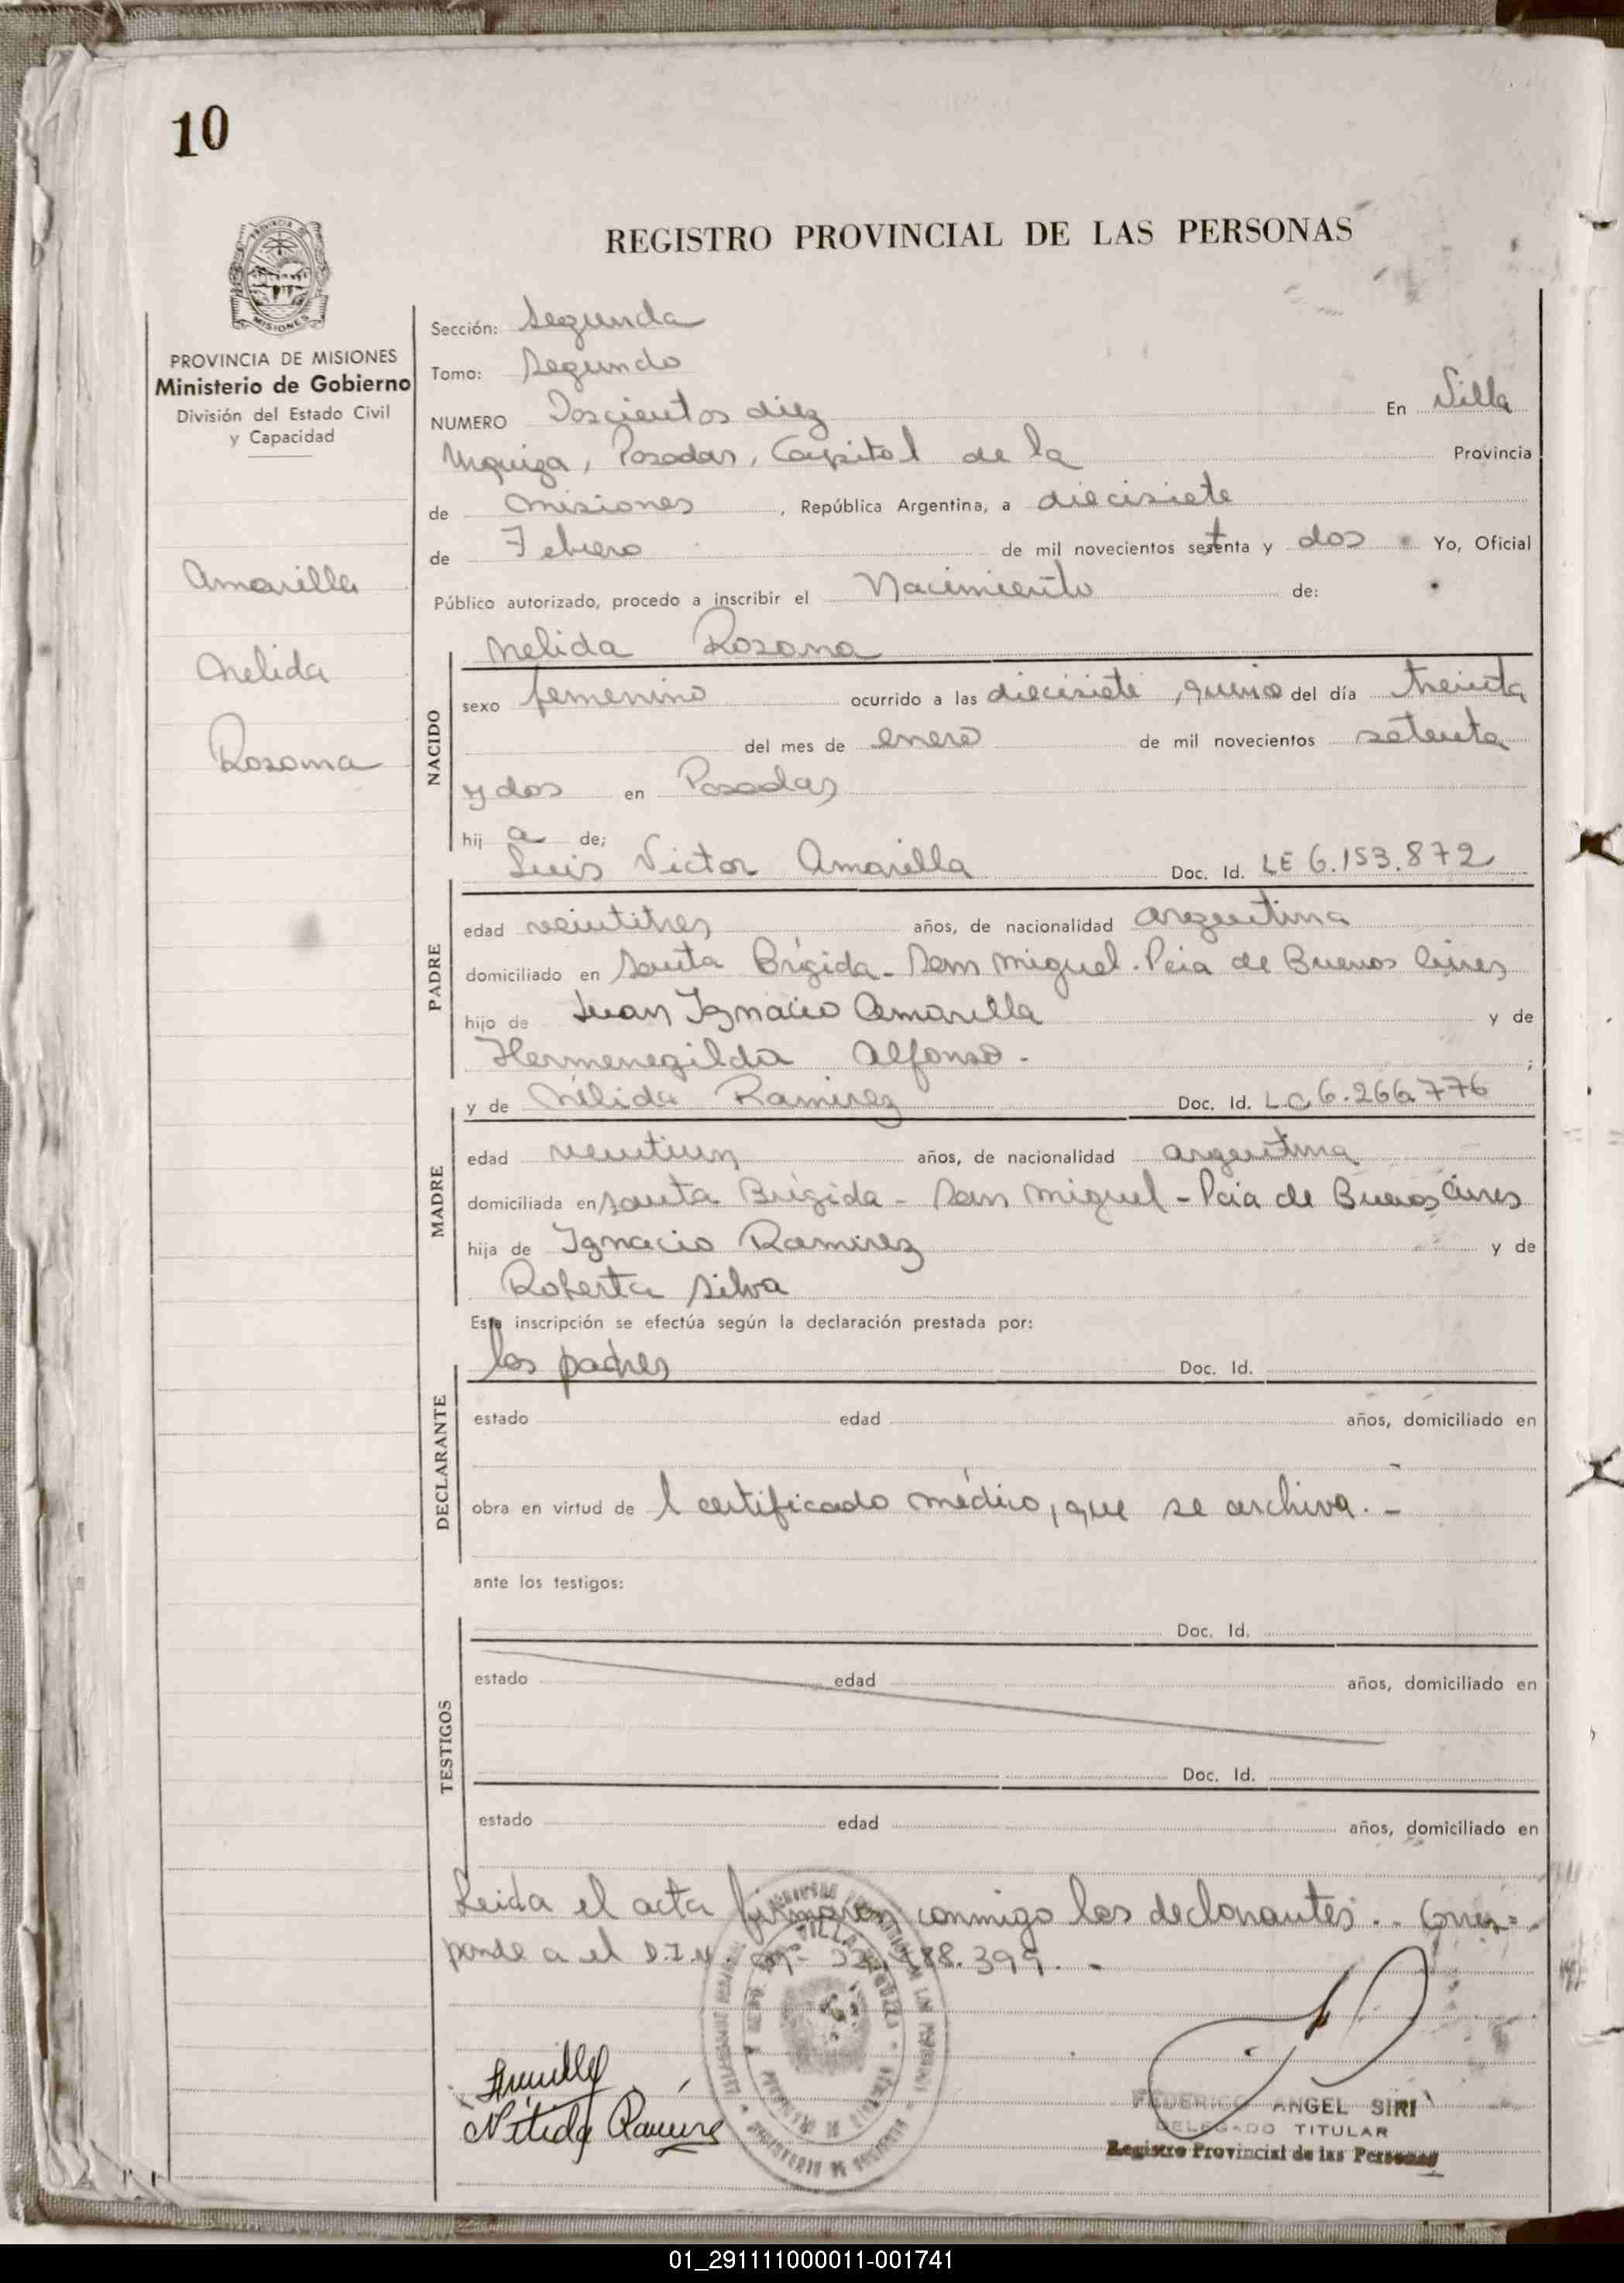 10
REGISTRO PROVINCIAL DE LAS PERSONAS
MISIONES
PROVINCIA DE MISIONES
Ministerio de Gobierno
División del Estado Civil
y Capacidad
Amarilla
Nelida
Rosana
Sección: Segunda
Tomo: Segundo
NUMERO Doscientos diez En Villa
Urquiza, Posadas, Capital de la Provincia
de Misiones , República Argentina, a diecisiete
de Febrero de mil novecientos setenta y dos Yo, Oficial
Público autorizado, procedo a inscribir el Nacimiento de:
Nelida Rosana
NACIDO
sexo femenino ocurrido a las diecisiete, quince del día treinta
del mes de enero de mil novecientos setenta
y dos en Posadas
hij a de;
Luis Victor Amarilla Doc. Id. LE 6.153.872
PADRE
edad veintitres años, de nacionalidad argentina
domiciliado en Santa Brígida - San Miguel. Pcia de Buenos Aires
hijo de Juan Ignacio Amarilla y de
Hermenegilda Alfonso. ;
y de Nélida Ramirez Doc. Id. LC 6.266.776
MADRE
edad veintiun años, de nacionalidad argentina
domiciliada en Santa Brígida - San Miguel - Pcia de Buenos Aires
hija de Ignacio Ramirez y de
Roberta Silva
Esta inscripción se efectúa según la declaración prestada por:
los padres Doc. Id.
DECLARANTE
estado edad años, domiciliado en
obra en virtud de l certificado médico, que se archiva. -
ante los testigos:
Doc. Id.
TESTIGOS
estado edad años, domiciliado en
Doc. Id.
estado edad años, domiciliado en
Leida el acta firmaron conmigo los declarantes.. Corres=
ponde a el D.I.N. 399. -
Nélida Ramirez
FEDERICO ANGEL SIRI
DELEGADO TITULAR
Registro Provincial de las Personas
01_291111000011-001741